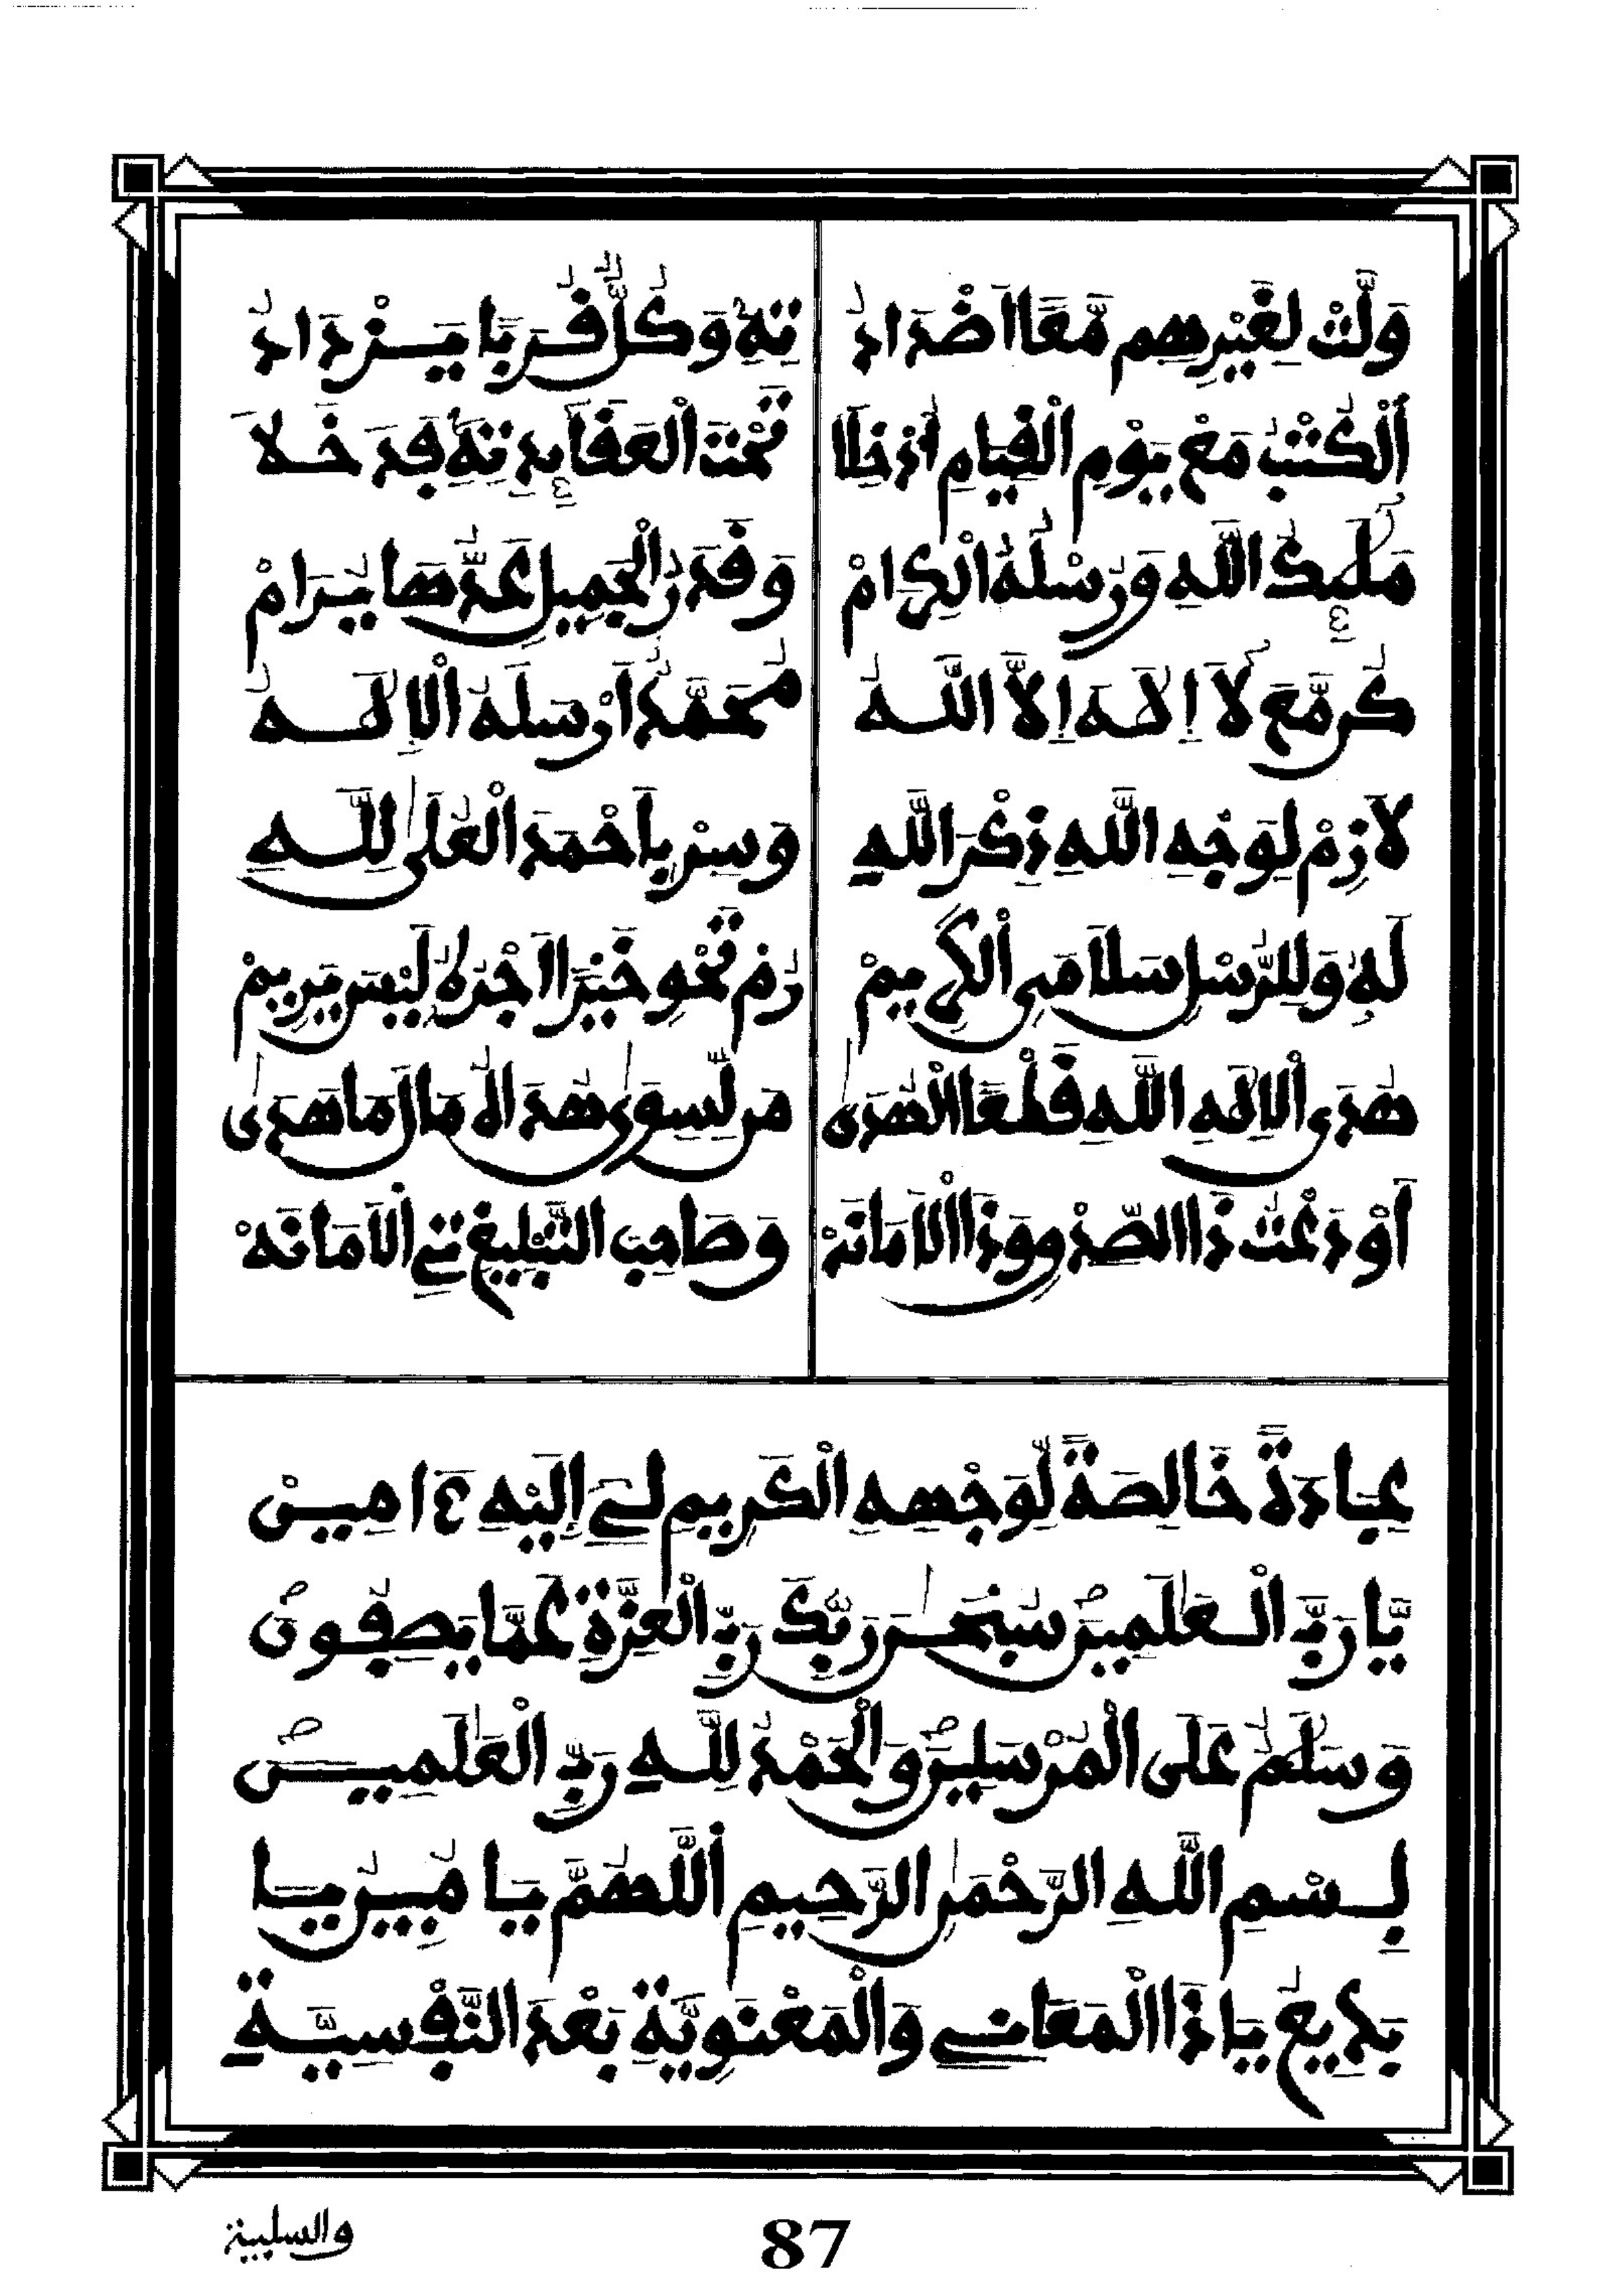 وَلَّتْ لِغَيْرِهِم مَّعًا اَضْدَادُ تِهِ وَكُلُّ قُرْبًا يَزْدَادُ
اَلْكُتْبُ مَعْ يَوْمِ الْقِيَامِ تَحْتَ الْعَقَائِدِ تِهِ قَدْ خَلَا
مَلَئِكُ اللَّهِ وَرُسْلُهُ الْكِرَامْ وَقَدْرُ الْجَمِيلِ عَدُّهَا يُرَامْ
كُن مَّعَ لَا إِلَهَ إِلَّا اللَّهُ مُحَمَّدٌ اَرْسَلَهُ الْإِلَهُ
لَازِمْ لِوَجْهِ اللَّهِ ذِكْرَ اللَّهِ وَسِرْ بِأَحْمَدَ الْعُلَى لِلَّهِ
لَهُ وَلِلرُّسْلِ سَلَامَيِ الْكَرِيمْ رُمْ نَحْوَ خَيْرًا اَجْرُهُ لَيْسَ يَرِيمْ
هُدَى الْإِلَهِ اللَّهِ قَطْعًا الْهُدَى مَن لِّسِوَى هُدَاهُ مَالَ مَا هُدَى
اَوْدَعْتُ ذَا الصِّدْقِ وَذَا الْاَمَانَهْ وَصَاحِبَ التَّبْلِيغِ تِي الْاَمَانَهْ
عِبَادَةً خَالِصَةً لِّوَجْهِهِ الْكَرِيمِ لِي إِلَيْهِ ءَامِينْ
يَّا رَبَّ الْعَلَمِينَ سُبْحَنَ رَبِّكَ رَبِّ الْعِزَّةِ عَمَّا يَصِفُونَ
وَسَلَمٌ عَلَى الْمُرْسَلِينَ وَالْحَمْدُ لِلَّهِ رَبِّ الْعَلَمِينَ
بِسْمِ اللَّهِ الرَّحْمَنِ الرَّحِيمِ اَللَّهُمَّ يَا مُبِينُ يَا
بَدِيعُ يَا ذَا الْمَعَانِي وَالْمَعْنَوِيَّةِ بَعْدَ النَّفْسِيَّةِ
87
والسلبية